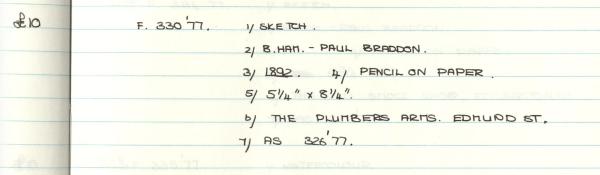 £10 F. 330'77. 1/ SKETCH.
2/ B.HAM. - PAUL BRADDON.
3/ 1892. 4/ PENCIL ON PAPER.
5/ 5¼" x 8¼".
6/ THE PLUMBERS ARMS. EDMUND ST.
7/ AS 326'77.